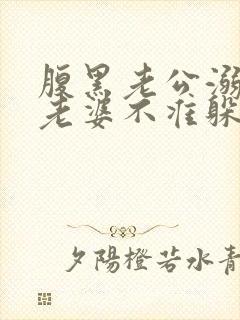 腹黑老公溺
老婆不准躲
夕陽橙若水青